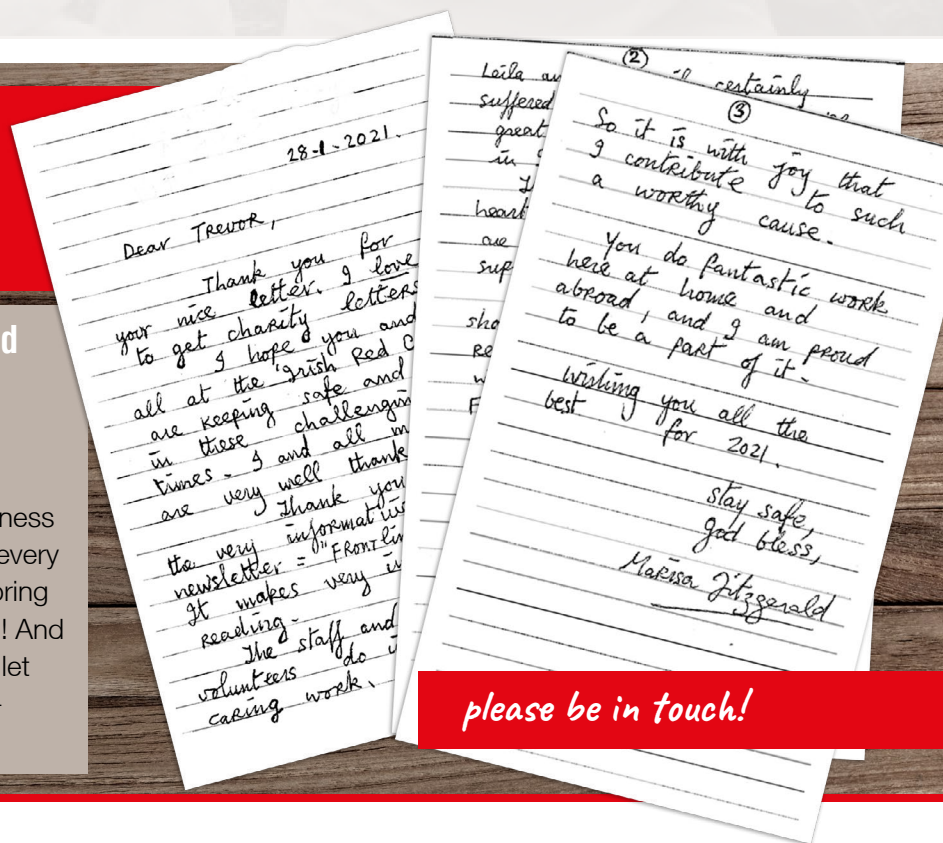 d
ness
every
oring
! And
let
28-1-2021.
Dear Trevor,
Thank you for
your nice letter. I love
to get charity letters
I hope you and
all at the 'Irish Red C
are keeping safe and
in these challengin
times - I and all m
are very well thank
Thank you
the very informative
newsletter = "FRONTlin
It makes very in
Reading.
The staff and
volunteers do
caring work.
②
Leila certainly
suffered
great
in
heart
are
sup
sho
Re
w
F
③
So it is with joy that
I contribute to such
a worthy cause.
You do fantastic work
here at home and
abroad, and I am proud
to be a part of it.
Wishing you all the
best for 2021.
Stay safe,
God bless,
Marisa Fitzgerald
please be in touch!